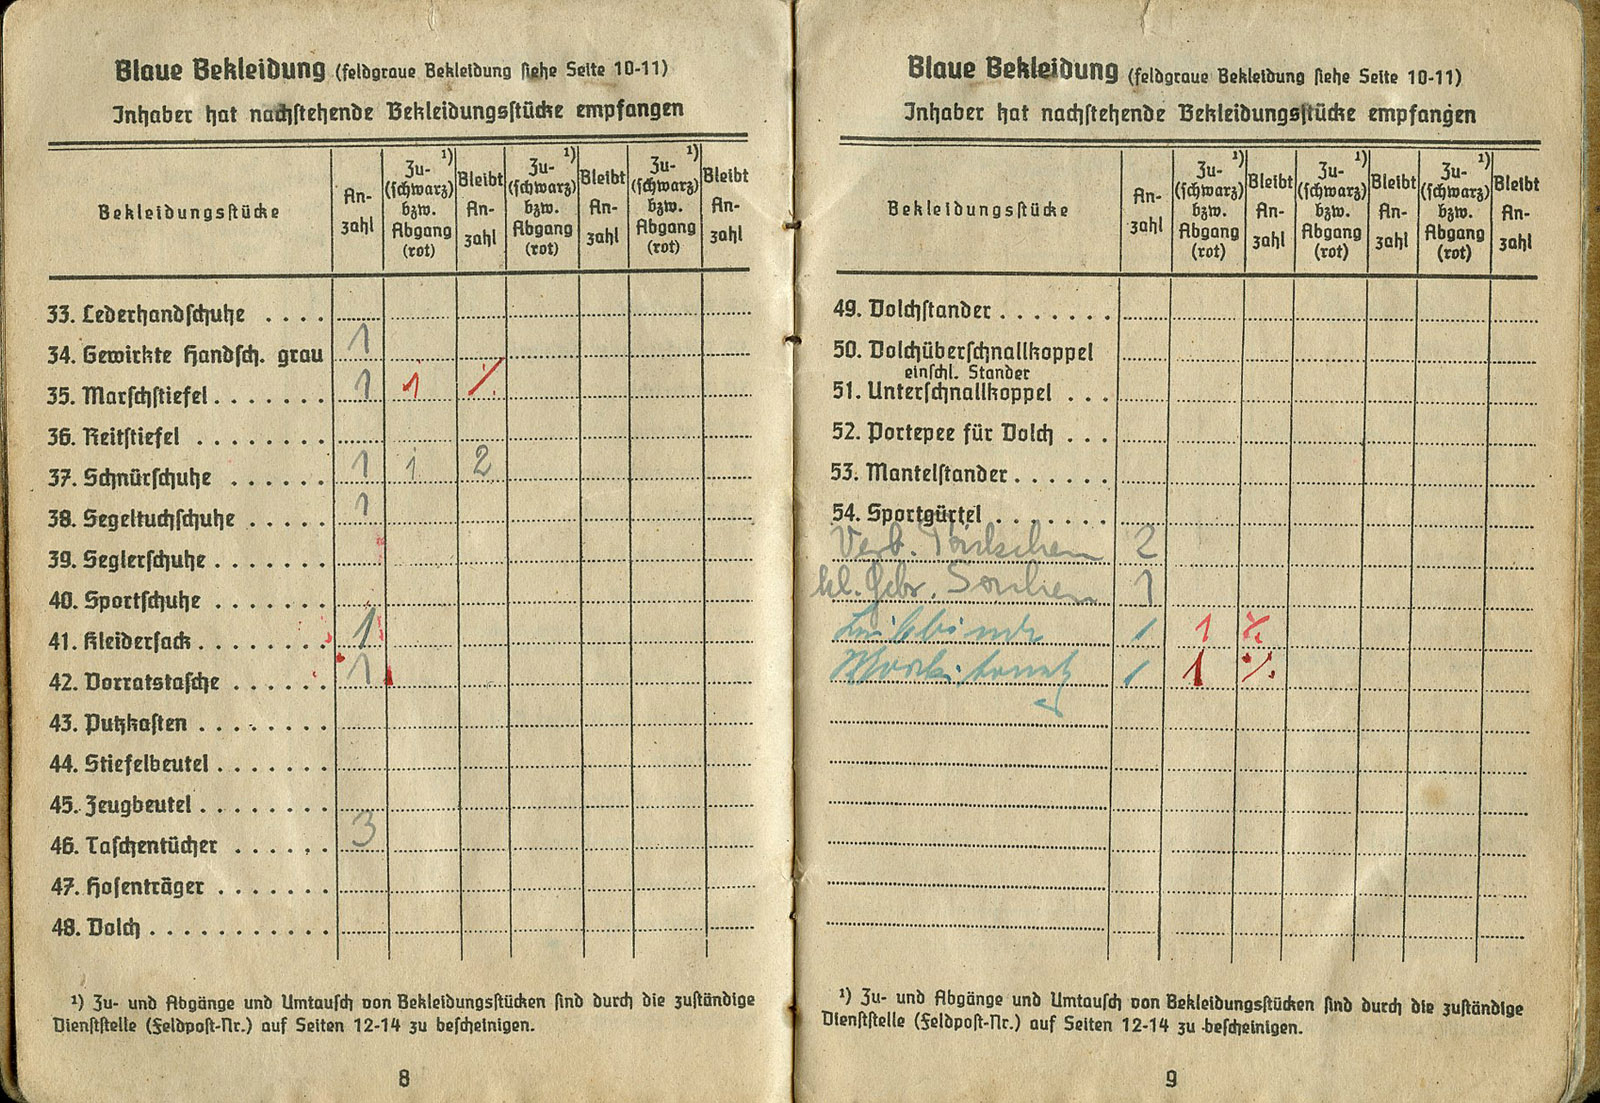 Blaue Bekleidung (feldgraue Bekleidung siehe Seite 10-11)
Inhaber hat nachstehende Bekleidungsstücke empfangen
Bekleidungsstücke An-zahl Zu-(schwarz) bzw. Abgang (rot) ¹) Bleibt An-zahl Zu-(schwarz) bzw. Abgang (rot) ¹) Bleibt An-zahl Zu-(schwarz) bzw. Abgang (rot) ¹) Bleibt An-zahl
33. Lederhandschuhe . . . .
34. Gewirkte Handsch. grau 1
35. Marschstiefel . . . . . . . 1 1 %
36. Reitstiefel . . . . . . . .
37. Schnürschuhe . . . . . . 1 1 2
38. Segeltuchschuhe . . . . . 1
39. Seglerschuhe . . . . . . .
40. Sportschuhe . . . . . . .
41. Kleidersack . . . . . . . . 1
42. Vorratstasche . . . . . . 1
43. Putzkasten . . . . . . . .
44. Stiefelbeutel . . . . . . .
45. Zeugbeutel . . . . . . . .
46. Taschentücher . . . . . . 3
47. Hosenträger . . . . . . .
48. Dolch . . . . . . . . . . .
¹) Zu- und Abgänge und Umtausch von Bekleidungsstücken sind durch die zuständige
Dienststelle (Feldpost-Nr.) auf Seiten 12-14 zu bescheinigen.
8
Blaue Bekleidung (feldgraue Bekleidung siehe Seite 10-11)
Inhaber hat nachstehende Bekleidungsstücke empfangen
Bekleidungsstücke An-zahl Zu-(schwarz) bzw. Abgang (rot) ¹) Bleibt An-zahl Zu-(schwarz) bzw. Abgang (rot) ¹) Bleibt An-zahl Zu-(schwarz) bzw. Abgang (rot) ¹) Bleibt An-zahl
49. Dolchstander . . . . . . .
50. Dolchüberschnallkoppel
einschl. Stander
51. Unterschnallkoppel . . .
52. Portepee für Dolch . . .
53. Mantelstander . . . . . .
54. Sportgürtel . . . . . . .
Verb. Päckchen 2
kl. 1
Leibbinde 1 1 %
1 1 %
¹) Zu- und Abgänge und Umtausch von Bekleidungsstücken sind durch die zuständige
Dienststelle (Feldpost-Nr.) auf Seiten 12-14 zu bescheinigen.
9